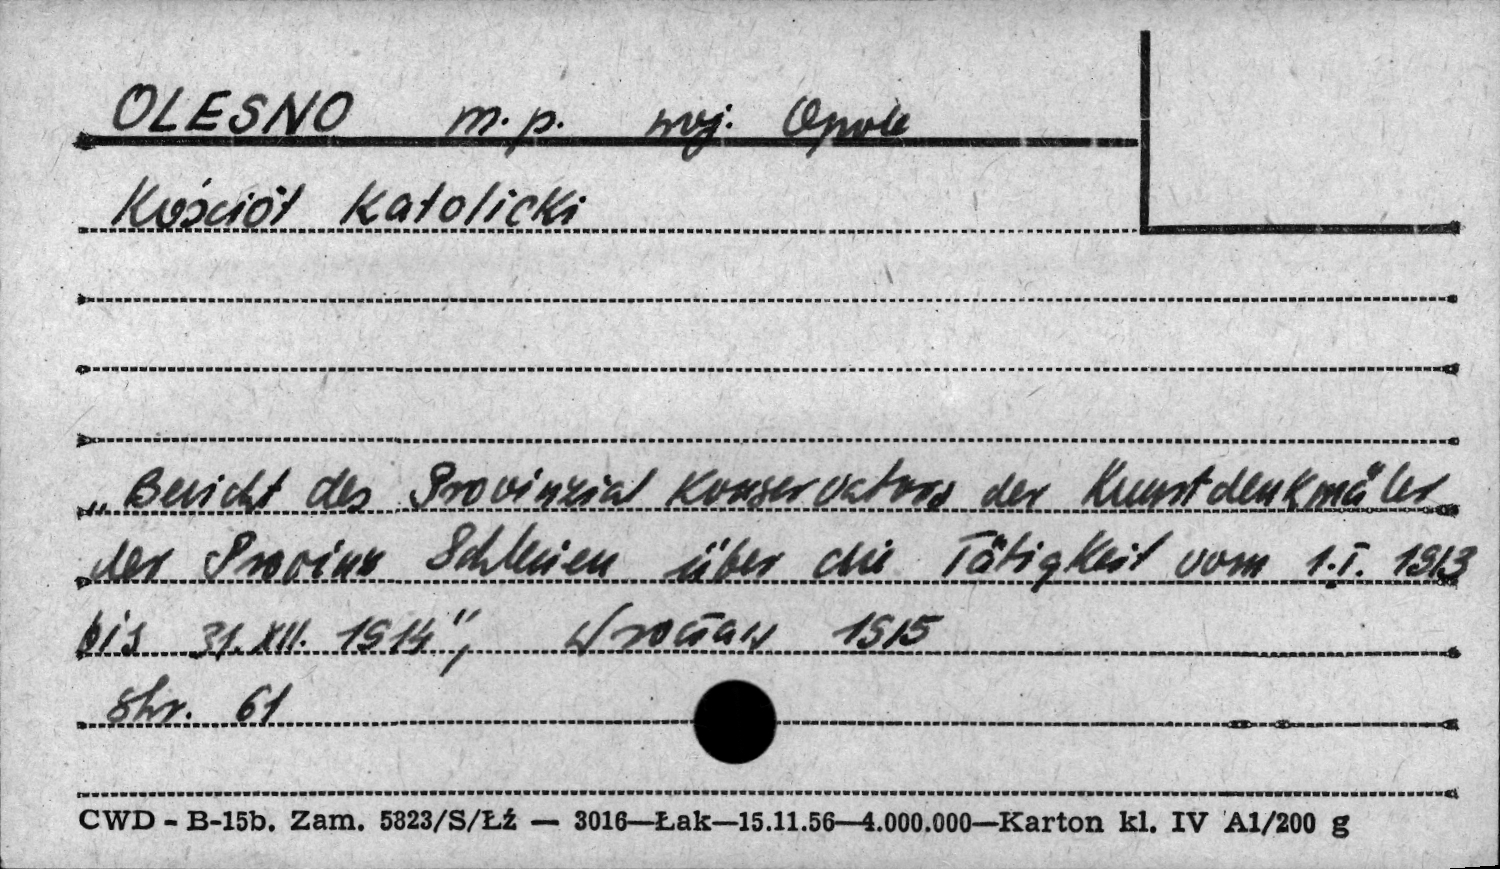 OLESNO m.p. woj. Opole
Kościół Katolicki
„Bericht des Provinzial Konservators der Kunstdenkmäler
der Provinz Schlesien über die Tätigkeit vom 1.I. 1913
bis 31.XII. 1914", Wrocław 1915
str. 61
CWD - B-15b. Zam. 5823/S/Łź — 3016—Łak—15.11.56—4.000.000—Karton kl. IV A1/200 g